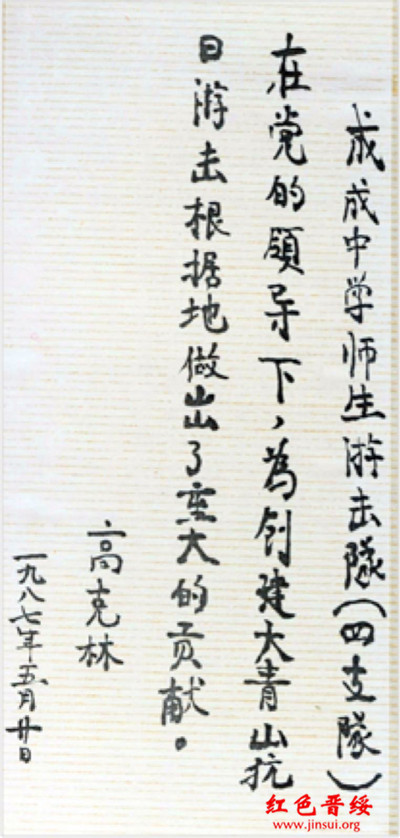 成成中学师生游击隊(四支隊)
在党的領导下,為创建大青山抗
日游击根据地做出了重大的贡献。
高克林
一九八七年五月廿日
红色晋绥
www.jinsui.org